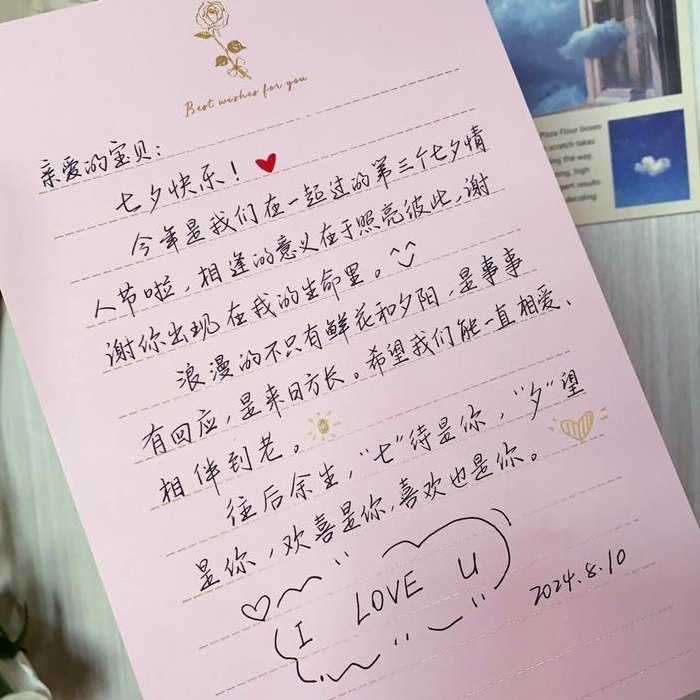 Best wishes for you
亲爱的宝贝：
七夕快乐！
今年是我们在一起过的第三个七夕情
人节啦，相逢的意义在于照亮彼此，谢
谢你出现在我的生命里。
浪漫的不只有鲜花和夕阳，是事事
有回应，是来日方长。希望我们能一直相爱、
相伴到老。
往后余生，“七”待是你，“夕”望
是你，欢喜是你，喜欢也是你。
I LOVE U
2024.8.10
Paza Flour boxes
scratch takes
ing the way.
ng, high
pert results
decoding